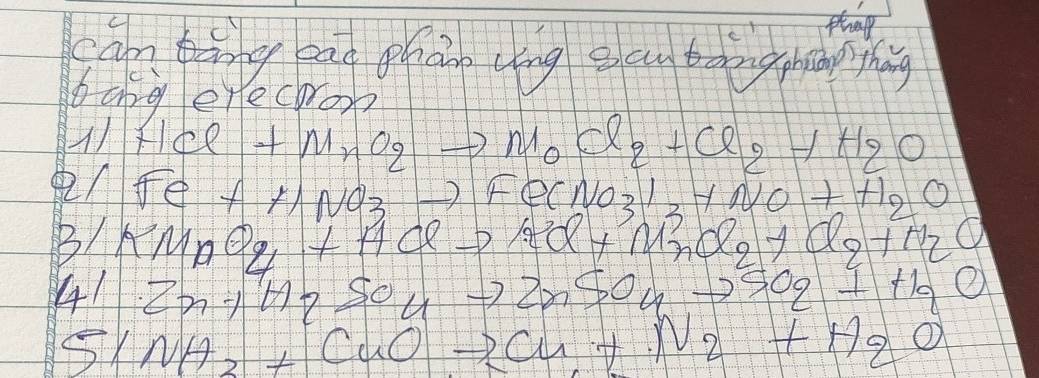 pháp
cân bằng các phản ứng sau bằng phương thăng
bằng electron
1/ HCl + MnO2 → MnCl2 + Cl2 + H2O
2/ Fe + HNO3 → Fe(NO3)3 + NO + H2O
3/ KMnO4 + HCl → KCl + MnCl2 + Cl2 + H2O
4/ Zn + H2SO4 → ZnSO4 → SO2 + H2O
5/ NH3 + CuO → Cu + N2 + H2O